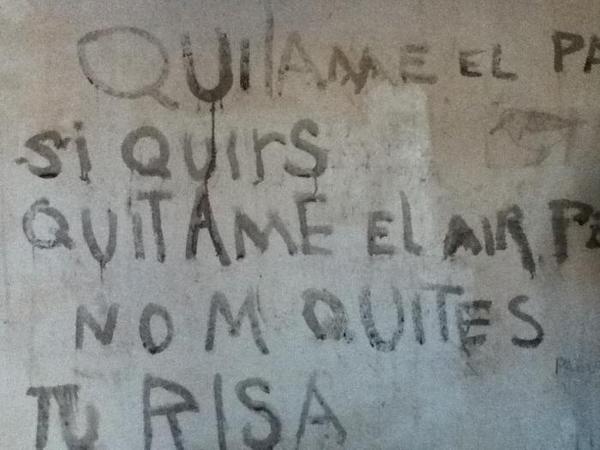 QUITAME EL PA
Si QUIrS
QUiTAME EL AIR PE
NO M QUITES
TU RISA